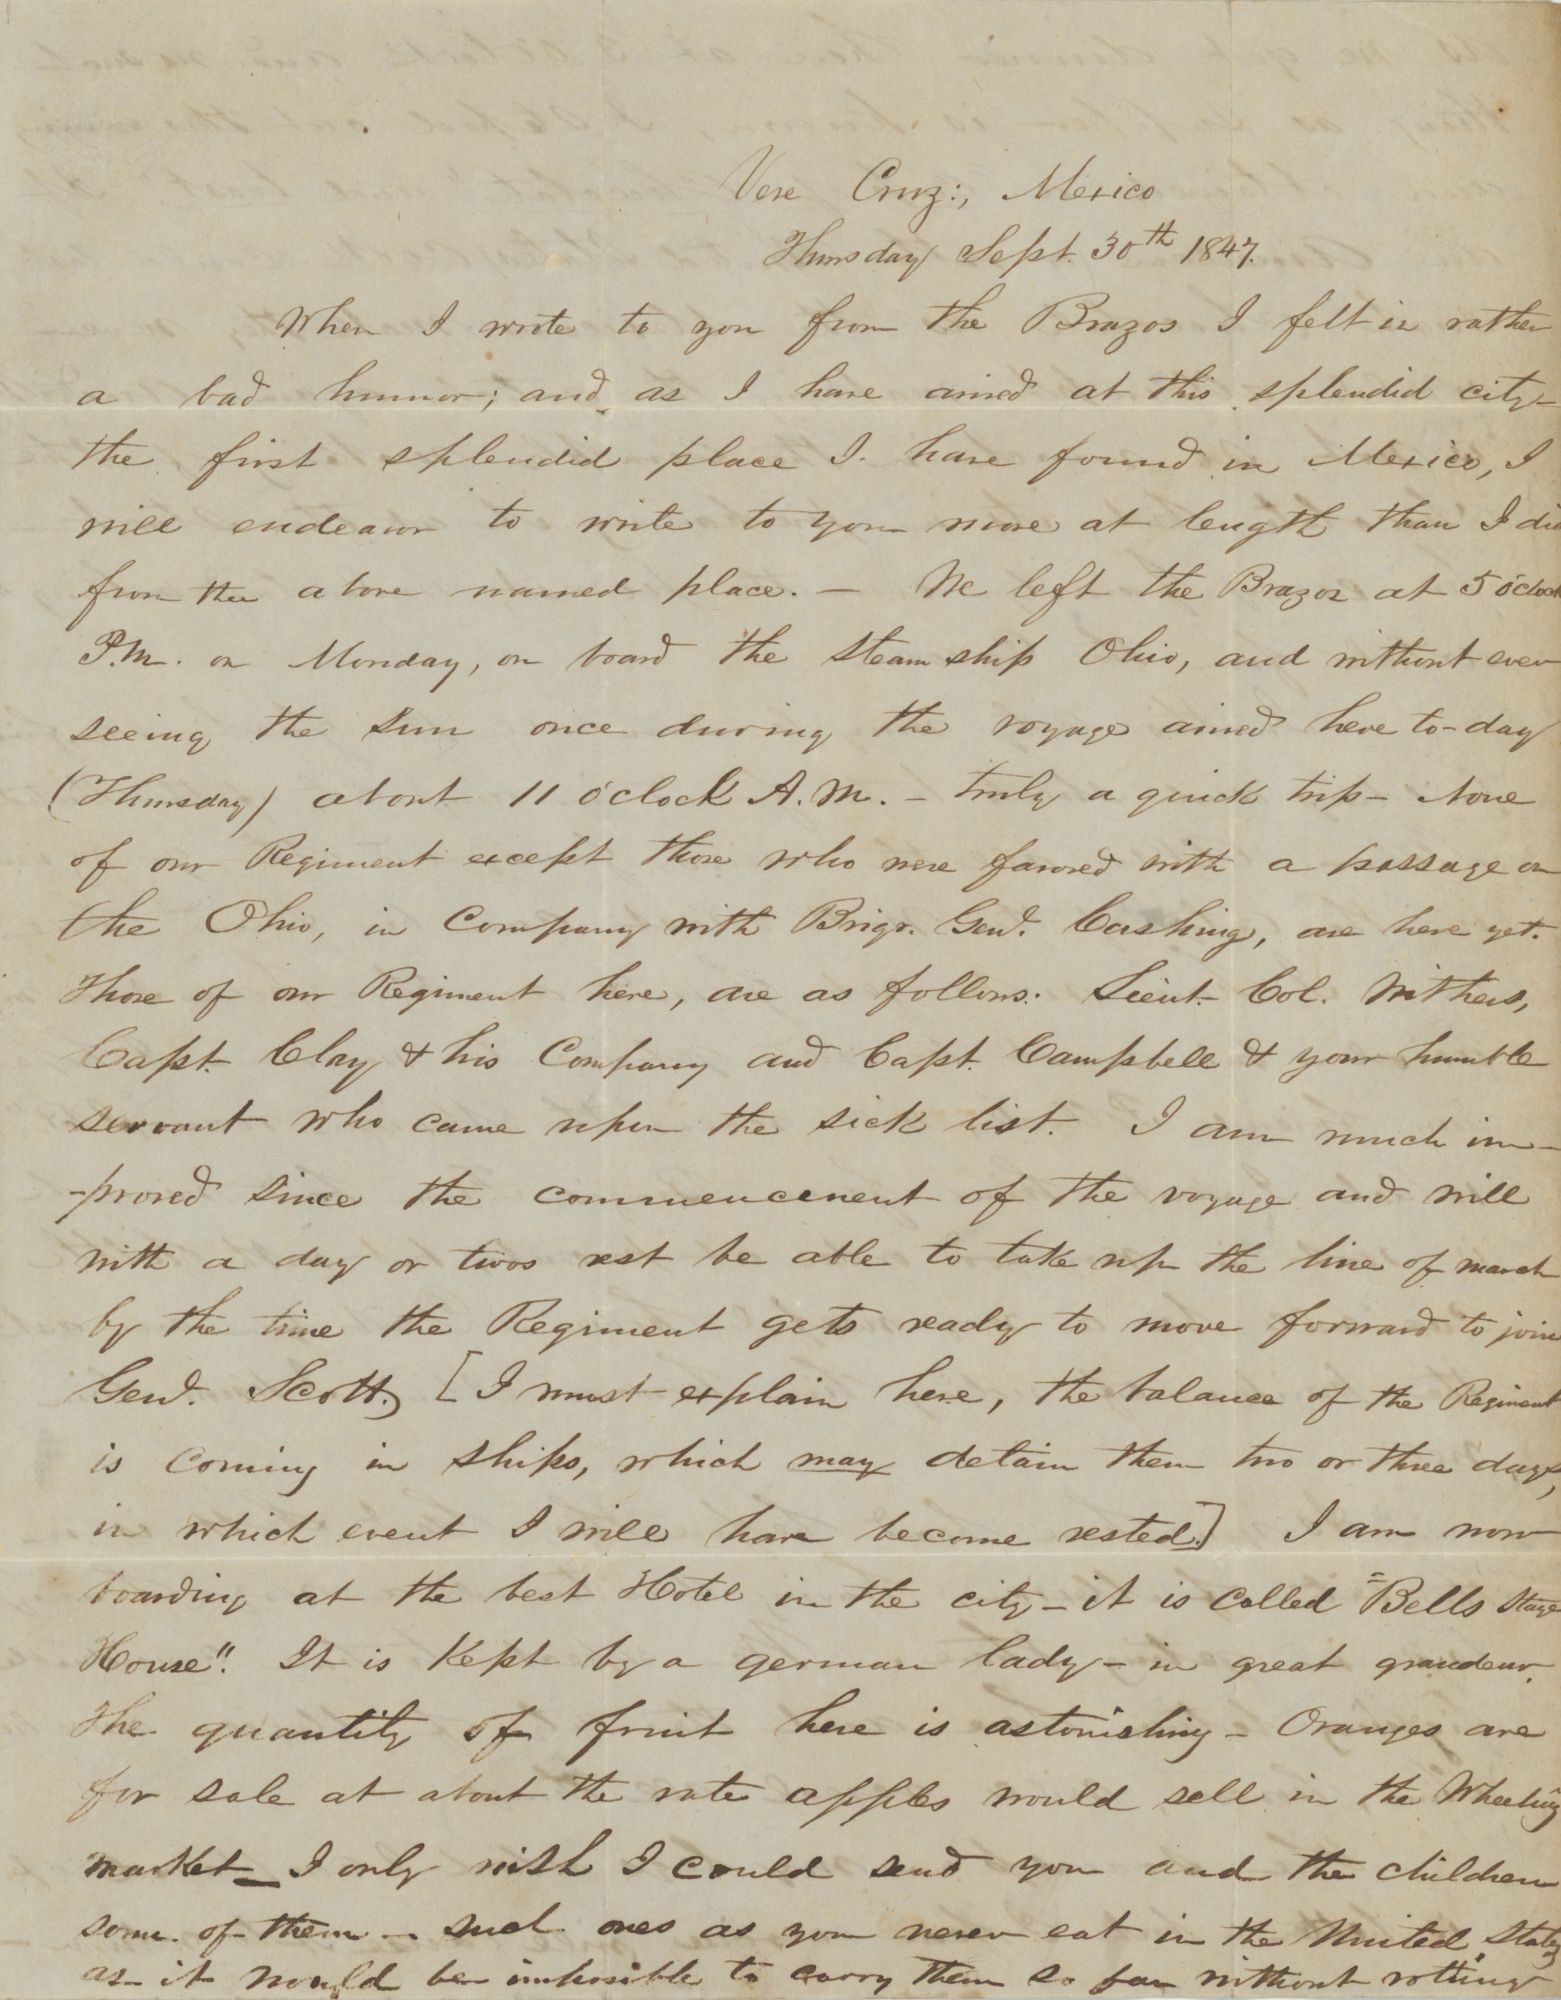 Vera Cruz:, Mexico
Thursday Sept. 30th 1847.
When I wrote to you from the Brazos I felt in rather
a bad humor; and as I have arrived at this splendid city—
the first splendid place I have found in Mexico, I
will endeavor to write to you more at length than I did
from the above named place. — We left the Brazos at 5 o'clock
P.M. on Monday, on board the steam ship Ohio, and without even
seeing the sun once during the voyage arrived here to-day
(Thursday) about 11 o'clock A.M. — truly a quick trip — None
of our Regiment except those who were favored with a passage on
the Ohio, in Company with Brigr. Genl. Cushing, are here yet.
Those of our Regiment here, are as follows: Lieut. Col. Withers,
Capt. Clay & his Company and Capt. Campbell & your humble
servant who came upon the sick list. I am much im-
-proved since the commencement of the voyage and will
with a day or twos rest be able to take up the line of march
by the time the Regiment gets ready to move forward to join
Genl. Scott. [I must explain here, the balance of the Regiment
is coming in ships, which may detain them two or three days,
in which event I will have become rested.] I am now
boarding at the best Hotel in the city — it is called "Bells Stage
House". It is kept by a german lady — in great grandeur.
The quantity of fruit here is astonishing — Oranges are
for sale at about the rate apples would sell in the Wheeling
market — I only wish I could send you and the children
some of them — such ones as you never eat in the United States,
as it would be impossible to carry them so far without rotting